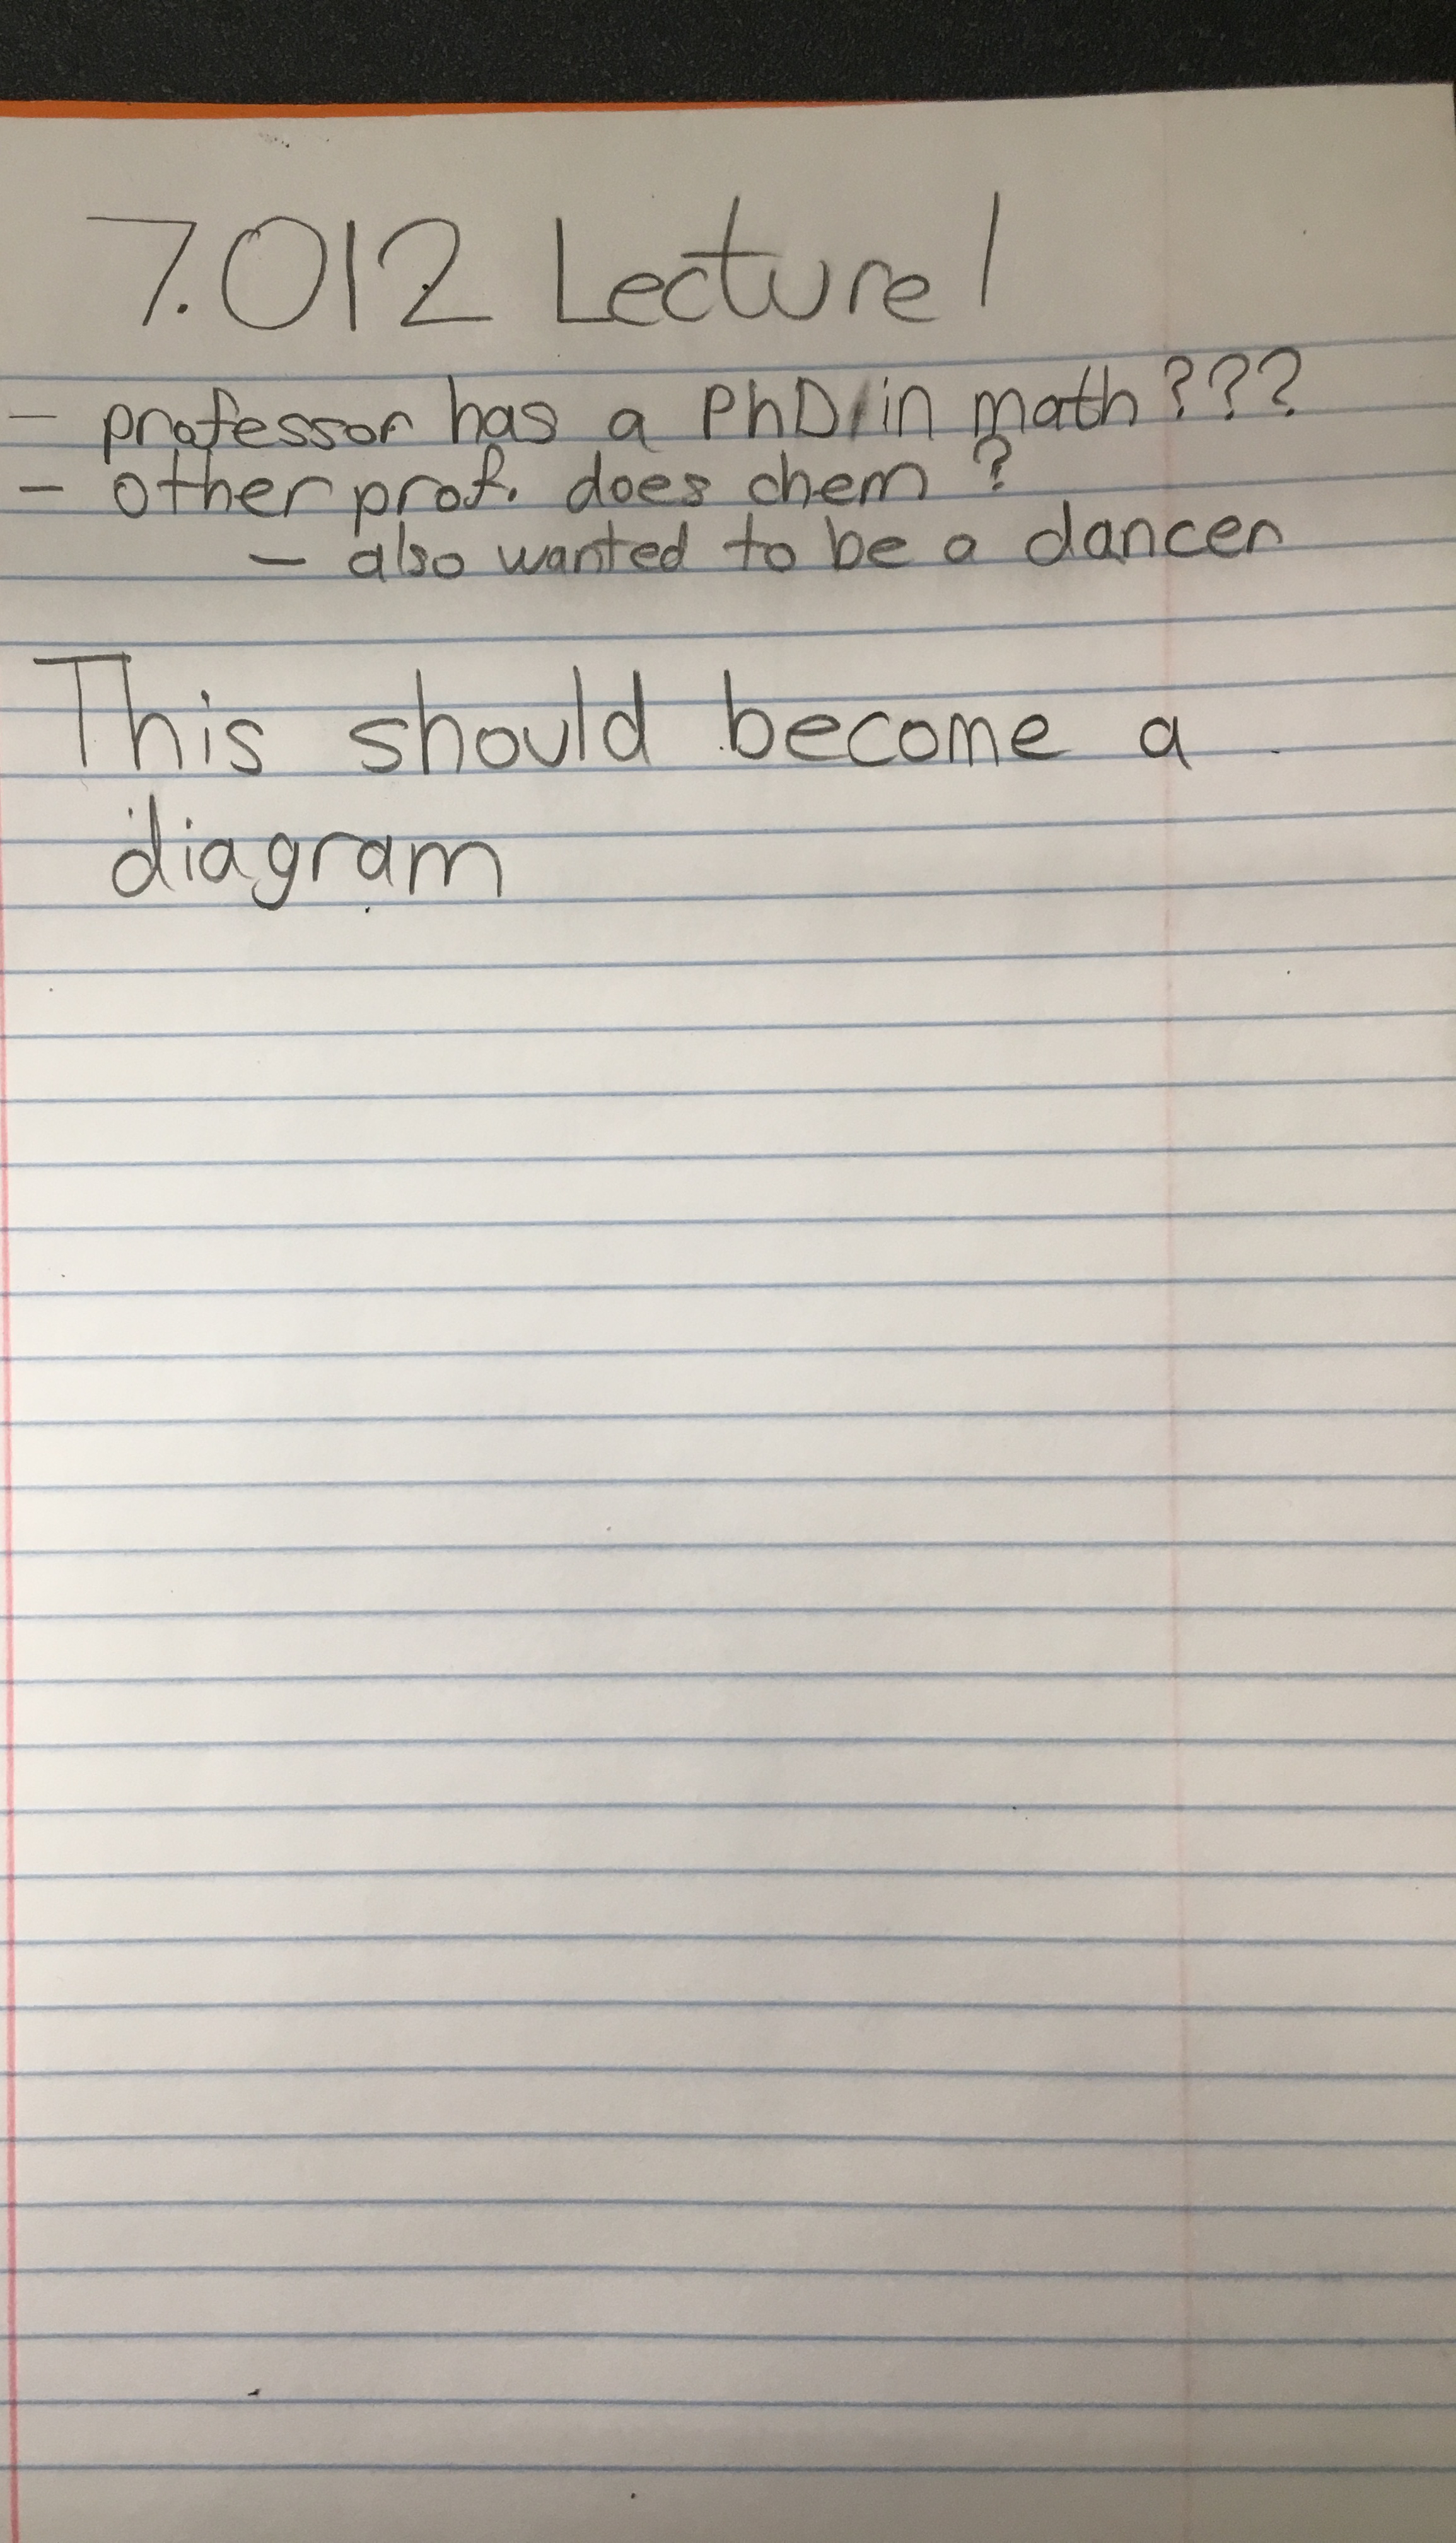 7.012 Lecture 1
- professor has a PhD in math???
- other prof. does chem?
- also wanted to be a dancer
This should become a
diagram